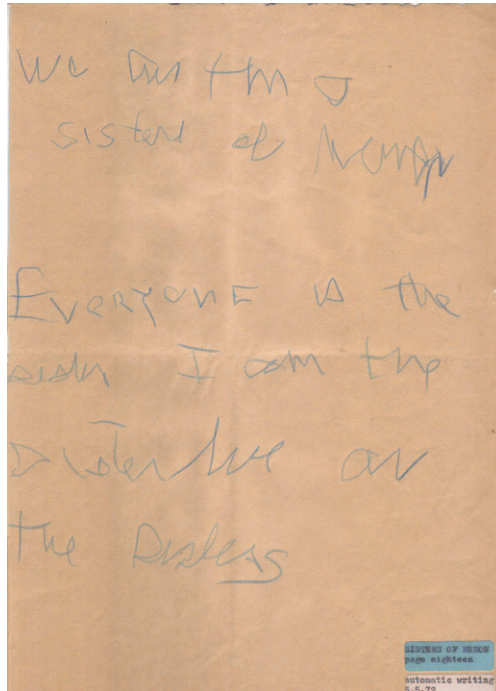 We are the
sisters of menon
EVERYONE is the
sister I am the
sister We are
the sisters
SISTERS OF MENON
page eighteen
automatic writing
5.5.72